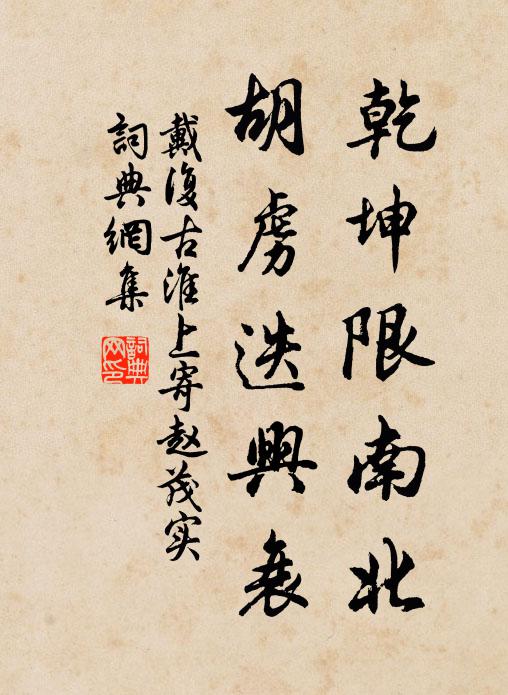 乾坤限南北
胡虜迭興衰
戴復古淮上寄赵茂实
詞典網集
詞典网印